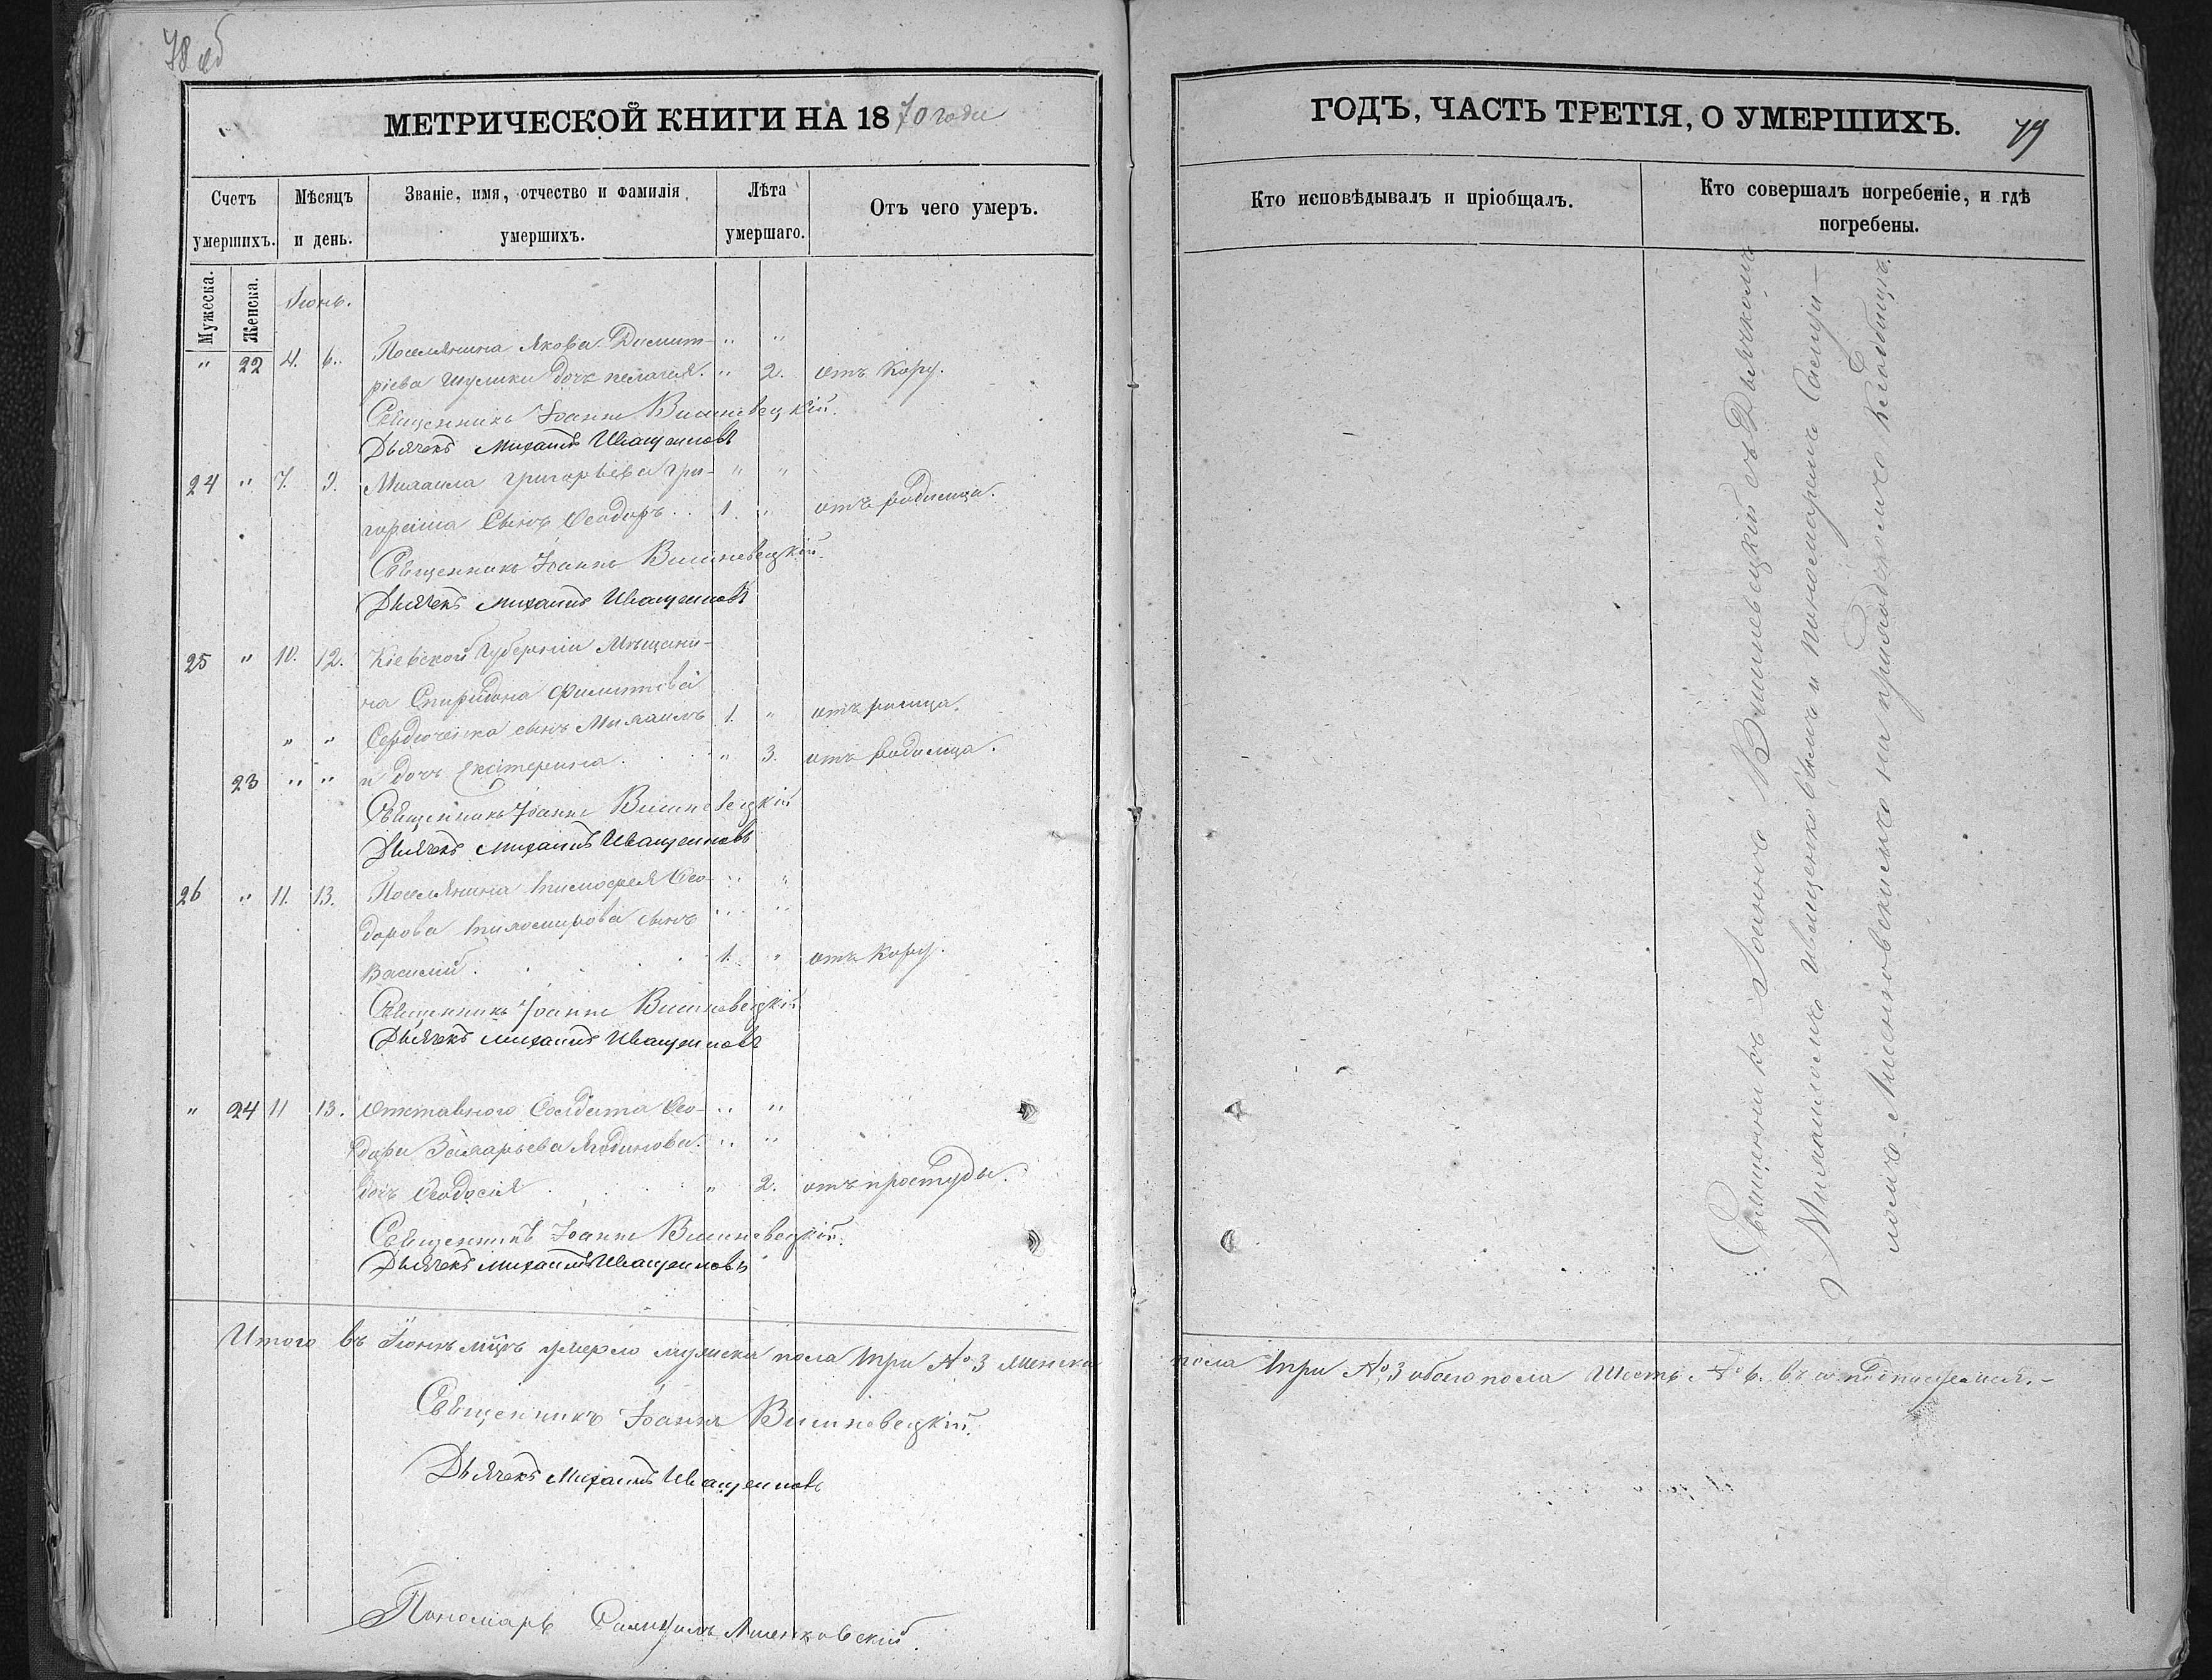 78 об
МЕТРИЧЕСКОЙ КНИГИ НА 1870 года
Счетъ умершихъ.
Мѣсяцъ и день.
Званіе, имя, отчество и фамилія умершихъ.
Лѣта умершаго.
Отъ чего умеръ.
Мужеска.
Женска.
Іюнь.
" 22 4. 6. Поселянина Якова Димит- " "
ріева Шулики дочь Пелагея. " 2. отъ Кору.
Священникъ Іоаннъ Вишневецкій.
Дьячекъ Михаилъ Иващенковъ
24 " 7. 9. Михаила Григорьева Гри- " "
гораша Сынъ Ѳеодоръ. 1. " отъ родимца.
Священникъ Іоаннъ Вишневецкій.
Дьячекъ Михаилъ Иващенковъ
25 " 10. 12. Кіевской Губерніи Мѣщани-
на Спиридона Филиппова
" " Сердюченка сынъ Михаилъ 1. " отъ
23 " " и дочь Екатерина. " 3. отъ родимца.
Священникъ Іоаннъ Вишневецкій
Дьячекъ Михаилъ Иващенковъ
26 " 11. 13. Поселянина Тимоѳея Ѳео- " "
дорова сынъ " "
Василій. 1. " отъ Кору.
Священникъ Іоаннъ Вишневецкій
Дьячекъ Михаилъ Иващенковъ
" 24 11 13. Отставного Солдата Ѳео- " "
дора Захарьева " "
дочь Ѳеодосія " 2. отъ простуды.
Священникъ Іоаннъ Вишневецкій.
Дьячекъ Михаилъ Иващенковъ
Итого въ Іюнѣ мцѣ умерло мужска пола три № 3 женска
Священникъ Іоаннъ Вишневецкій.
Дьячекъ Михаилъ Иващенковъ
Пономарь Самуилъ
ГОДЪ, ЧАСТЬ ТРЕТІЯ, О УМЕРШИХЪ.
79
Кто исповѣдывалъ и пріобщалъ.
Кто совершалъ погребеніе, и гдѣ погребены.
Священникъ Іоаннъ Вишневецкій съ Дьячкомъ
Михаиломъ Иващенковымъ и пономаремъ Самуи-
ломъ на приходскомъ кладбищѣ.
пола три № 3 обоего пола Шесть № 6. въ подписуемся.-